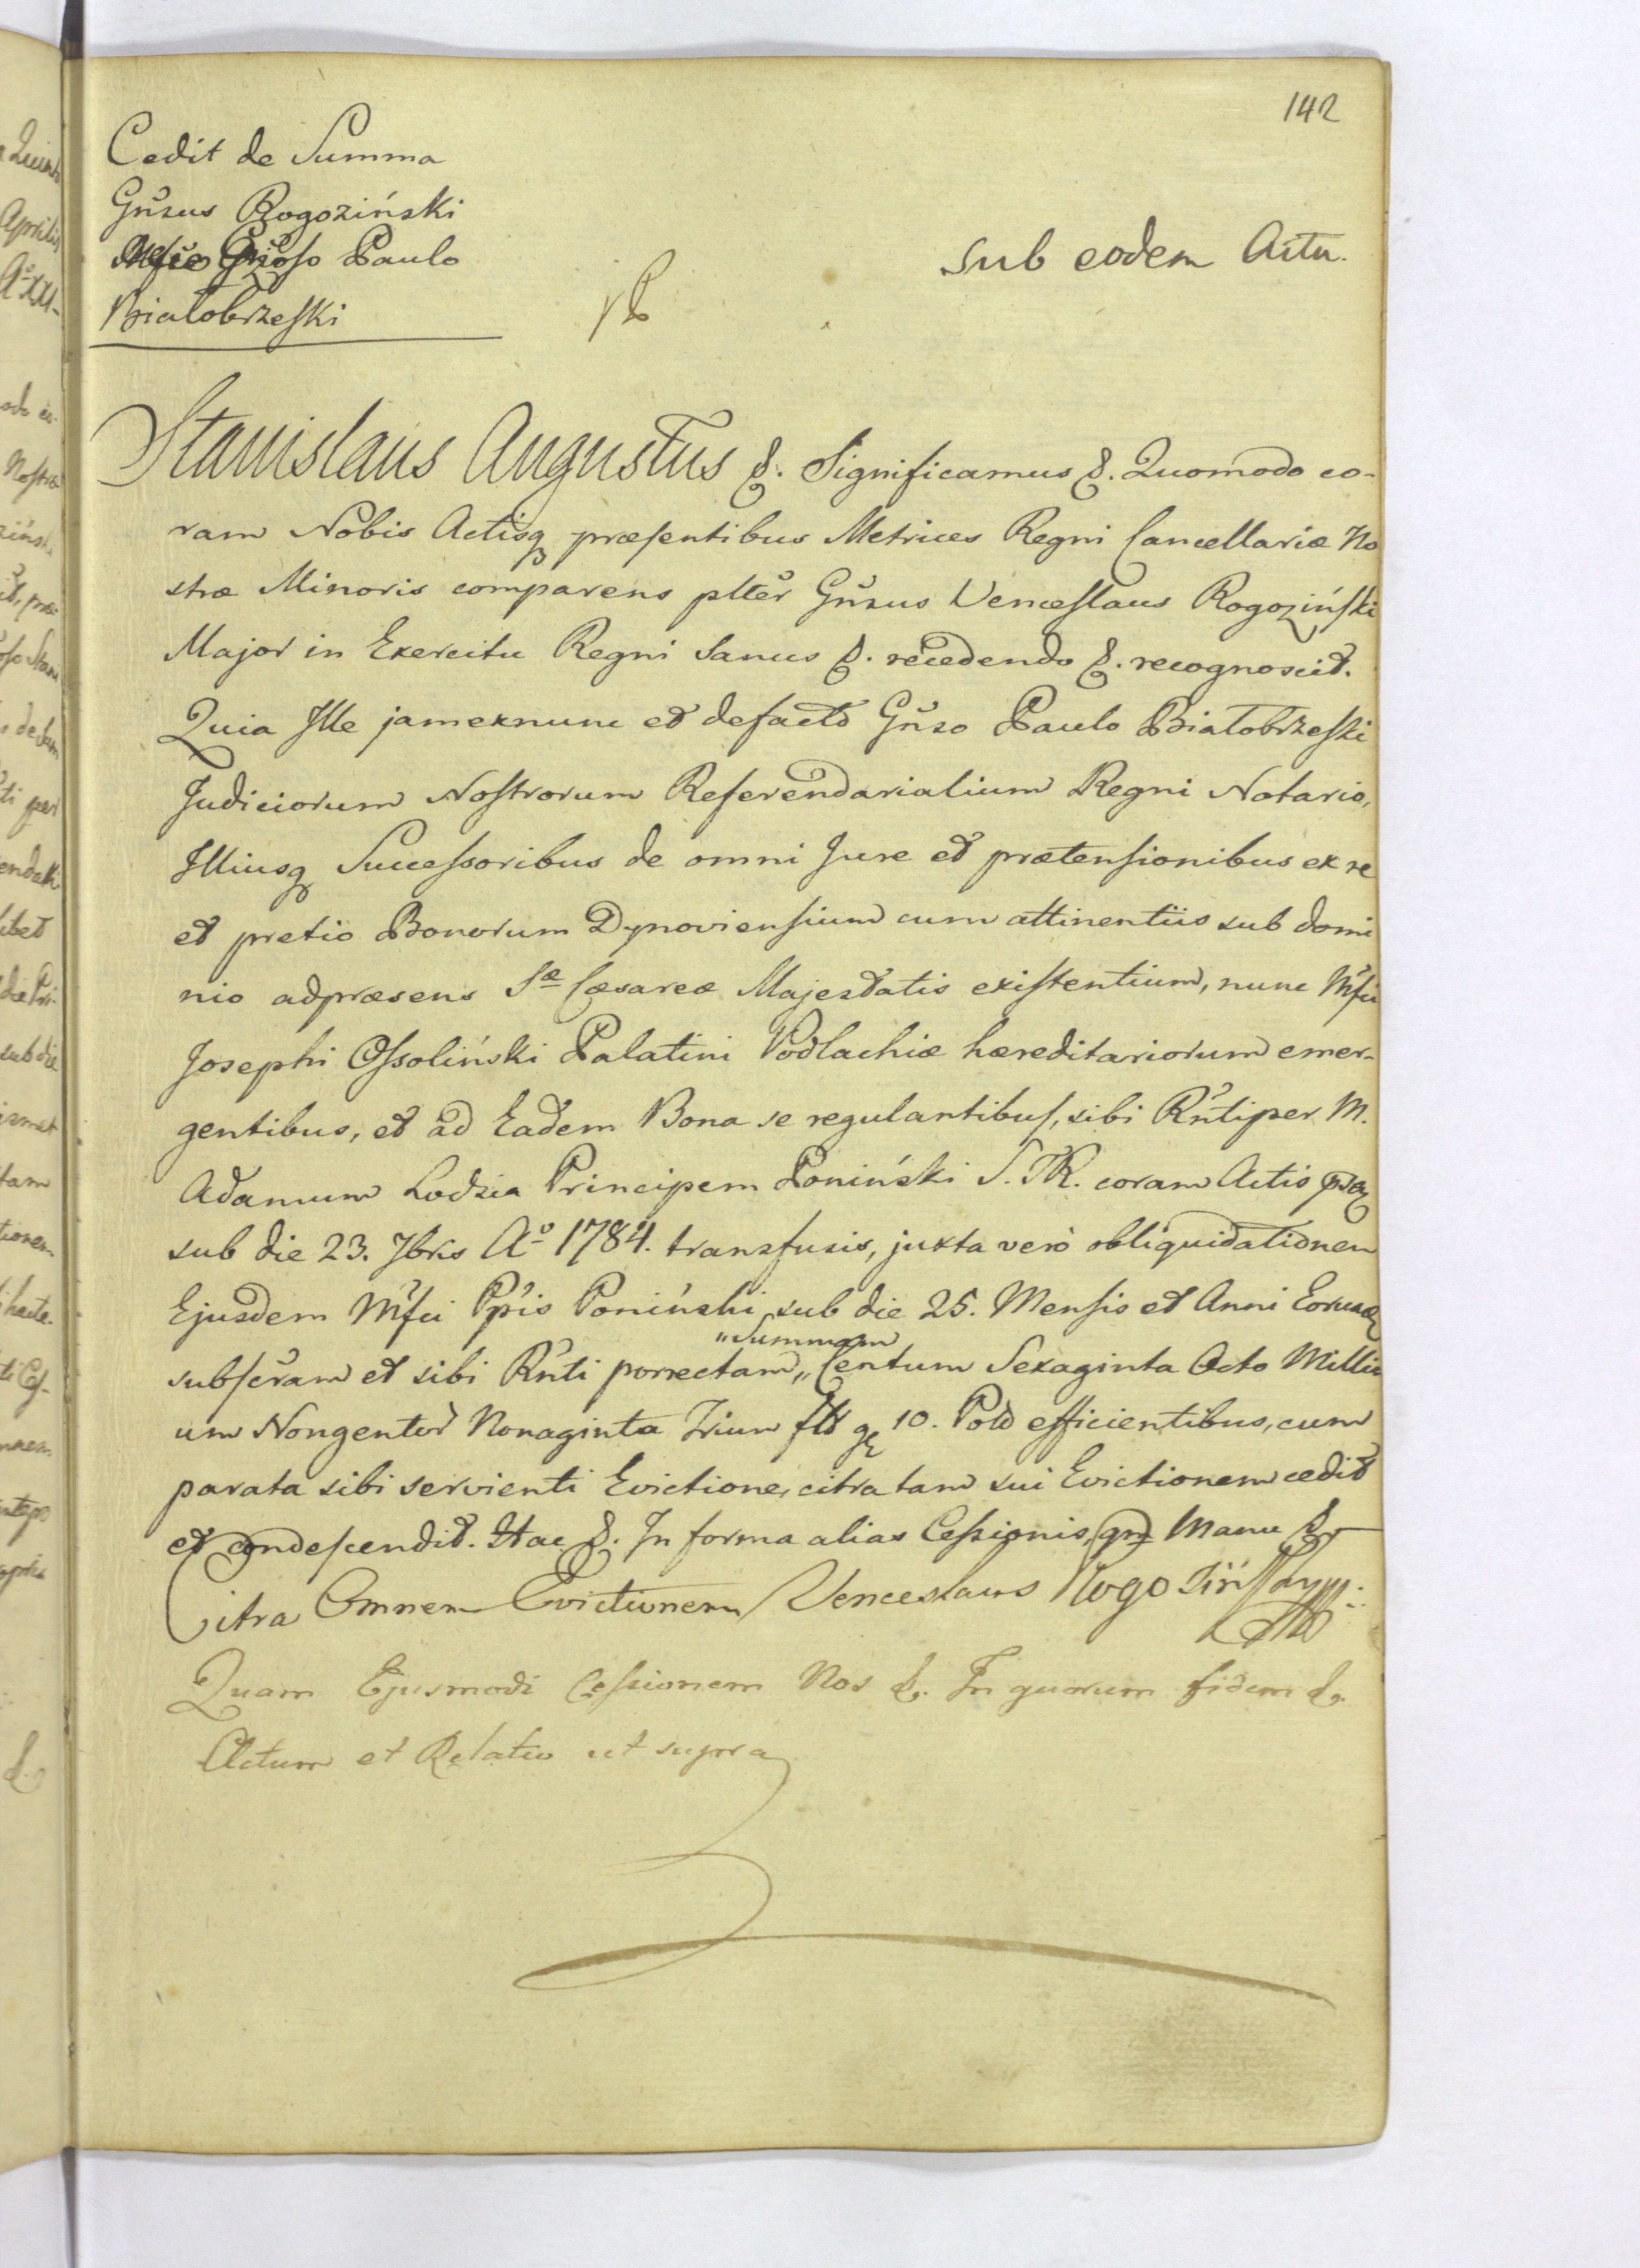 142
Cedit de Summa
Gn̄sus Rogoziński
Gn̄oso Paulo
Białobrzeski
sub eodem Actu.
Stanislaus Augustus &. Significamus &. Quomodo co-
ram Nobis Actisq præsentibus Metrices Regni Cancellariæ No
stræ Minoris comparens pltēr Gn̄sus Venceslaus Rogoziński
Major in Exercitu Regni Sanus &. recedendo &. recognoscit.
Quia Ille jamexnunc et defacto Gn̄so Paulo Białobrzeski
Judiciorum Nostrorum Referendarialium Regni Notario,
Illiusq Successoribus de omni Jure et prætensionibus ex re
et pretio Bonorum Dynoviensium cum attinentiis sub domi
nio adpræsens Sæ Cæsareæ Majestatis existentium, nunc Mfci
Josephi Ossoliński Palatini Podlachiæ hæreditariorum emer-
gentibus, et ad Eadem Bona se regulantibus, sibi Rn̄ti per M.
Adamum Lodzia Principem Poniński S. TR. coram Actis
sub die 23. 7bris Aº 1784. transfusis, juxta verò obliquidationem
Ejusdem Mfci Ppis Poniński sub die 25. Mensis et Anni Eorumdem
subscr̄am et sibi Rn̄ti porrectam, "Summam" Centum Sexaginta Octo Milli
um Nongentor Nonaginta Trium fl g 10. Pol efficientibus, cum
parata sibi servienti Evictione, citra tam sui Evictionem cedit
et condescendit. Hac &. In forma alias Cessionis, Manu &
Citra Omnem Evictionem Venceslaus Rogoziński
Quam Ejusmodi Cessionem Nos &. In quorum fidem &.
Actum et Relatio ut supra